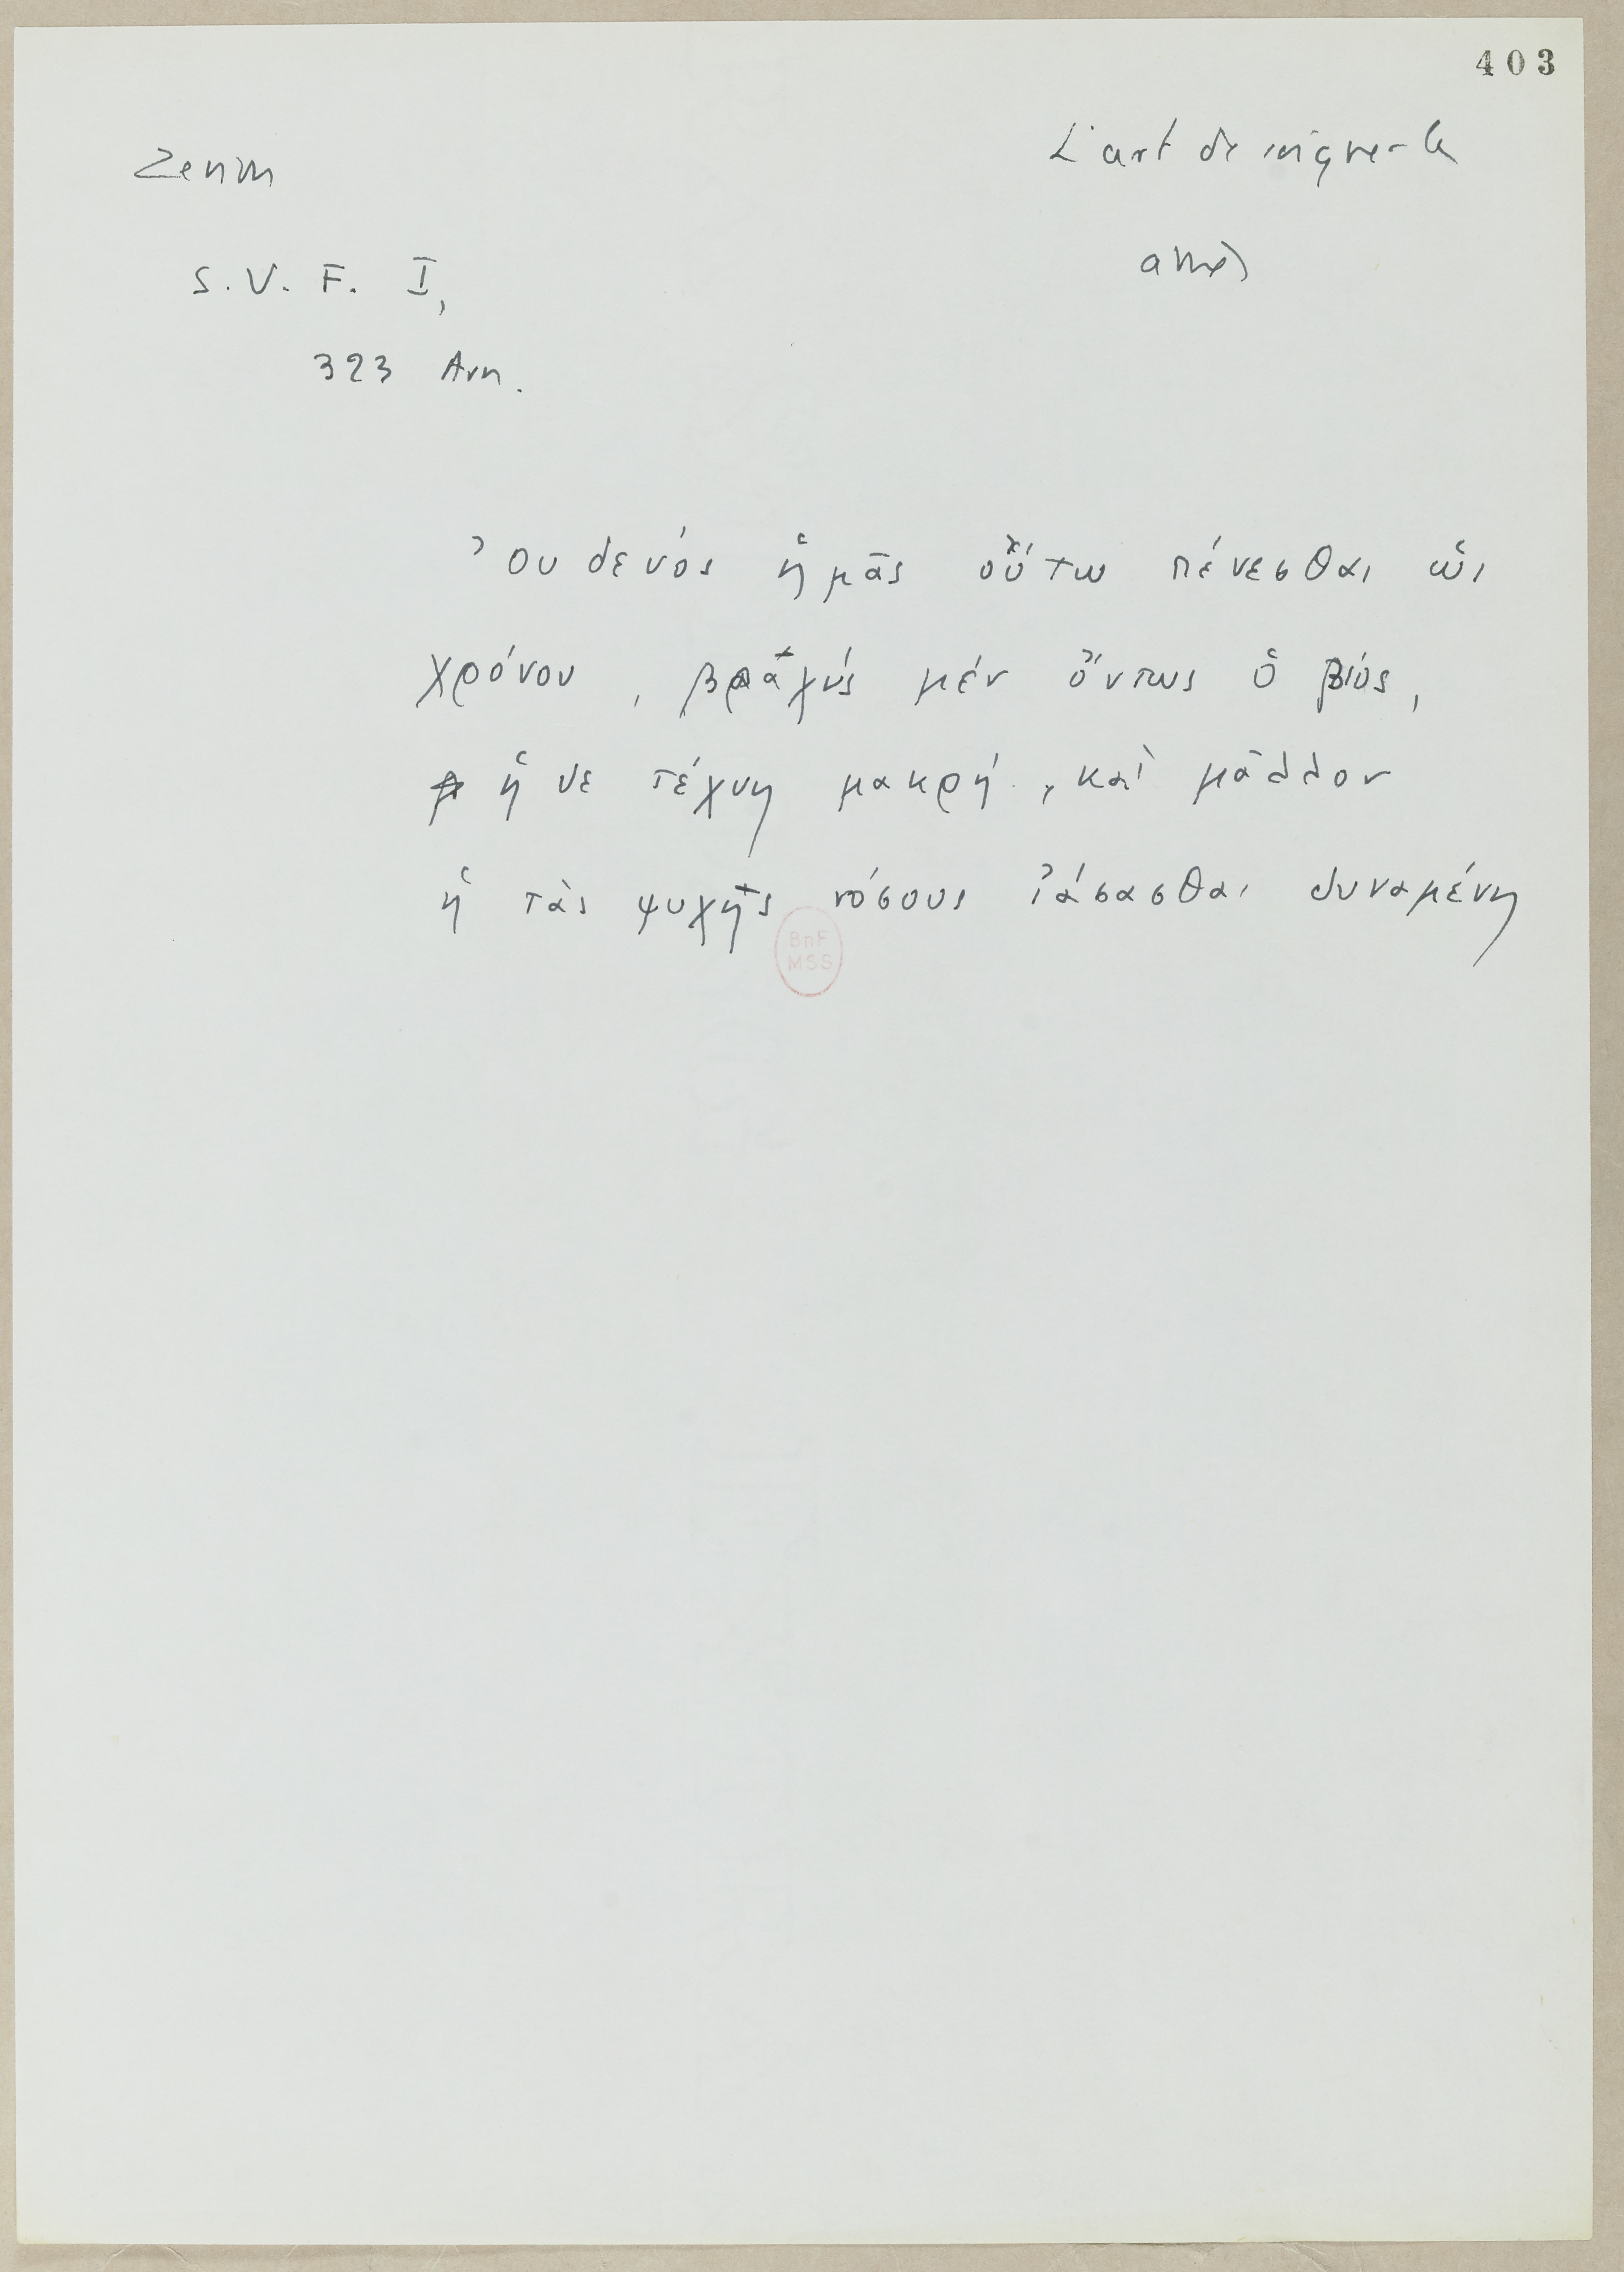 403
Zenon
L'art de soigner les
âmes
S. V. F. I,
323 Arn.
Ὀυδενός ἡμᾶς οὕτω πένεσθαι ὡς
χρόνου, βραχύς μέν ὄντως ὁ βίος,
ἡ δε τέχνη μακρή, καὶ μᾶλλον
ἡ τὰς ψυχῆς νόσους ἰάσασθαι δυναμένη
BnF
MSS